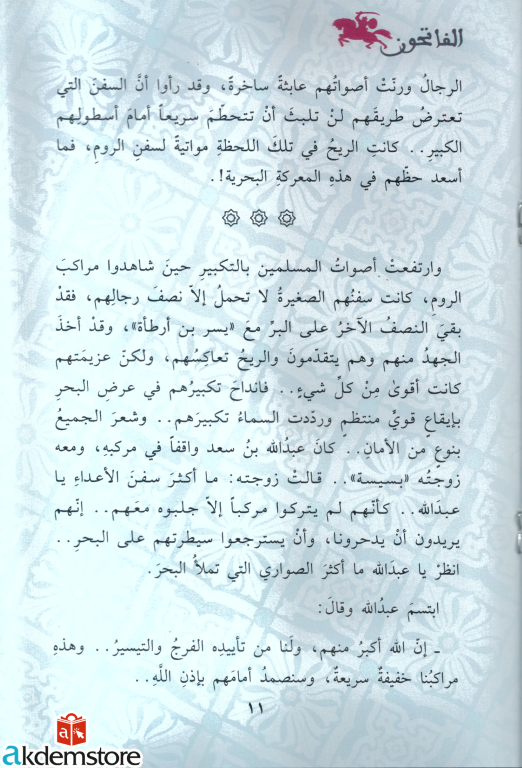 الفاتحون
الرجالُ ورنّتْ أصواتُهم عابثةً ساخرةً، وقد رأوا أنَّ السفنَ التي
تعترضُ طريقَهم لنْ تلبثَ أنْ تتحطّمَ سريعاً أمامَ أسطولِهم
الكبيرِ.. كانتِ الريحُ في تلكَ اللحظةِ مواتيةً لسفنِ الرومِ، فما
أسعد حظّهم في هذهِ المعركةِ البحرية!.
وارتفعتْ أصواتُ المسلمين بالتكبيرِ حينَ شاهدوا مراكبَ
الرومِ، كانت سفنُهم الصغيرةُ لا تحملُ إلاّ نصفَ رجالِهم، فقدْ
بقيَ النصفُ الآخرُ على البرِّ معَ «يسر بن أرطأة»، وقدْ أخذَ
الجهدُ منهم وهم يتقدّمونَ والريحُ تعاكِسُهم، ولكنّ عزيمَتهم
كانت أقوىٰ مِنْ كلِّ شيءٍ.. فانداحَ تكبيرُهم في عرضِ البحرِ
بإيقاعٍ قويٍّ منتظمٍ وردّدت السماءُ تكبيرَهم.. وشعرَ الجميعُ
بنوعٍ من الأمانِ.. كانَ عبدُالله بنُ سعد واقفاً في مركبهِ، ومعه
زوجتُه «بسيسة».. قالتْ زوجته: ما أكثرَ سفنَ الأعداءِ يا
عبدَالله.. كأنّهم لم يتركوا مركباً إلاّ جلبوه معَهم.. إنّهم
يريدون أنْ يدحرونا، وأنْ يسترجعوا سيطرتهم على البحرِ..
انظرْ يا عبدَالله ما أكثرَ الصواري التي تملأُ البحرَ.
ابتسمَ عبدُالله وقالَ:
ـ إنّ الله أكبرُ منهم، ولَنا من تأييدِه الفرجُ والتيسيرُ.. وهذهِ
مراكبُنا خفيفةٌ سريعةٌ، وسنصمدُ أمامَهم بإذنِ اللَّهِ..
١١
akdemstore